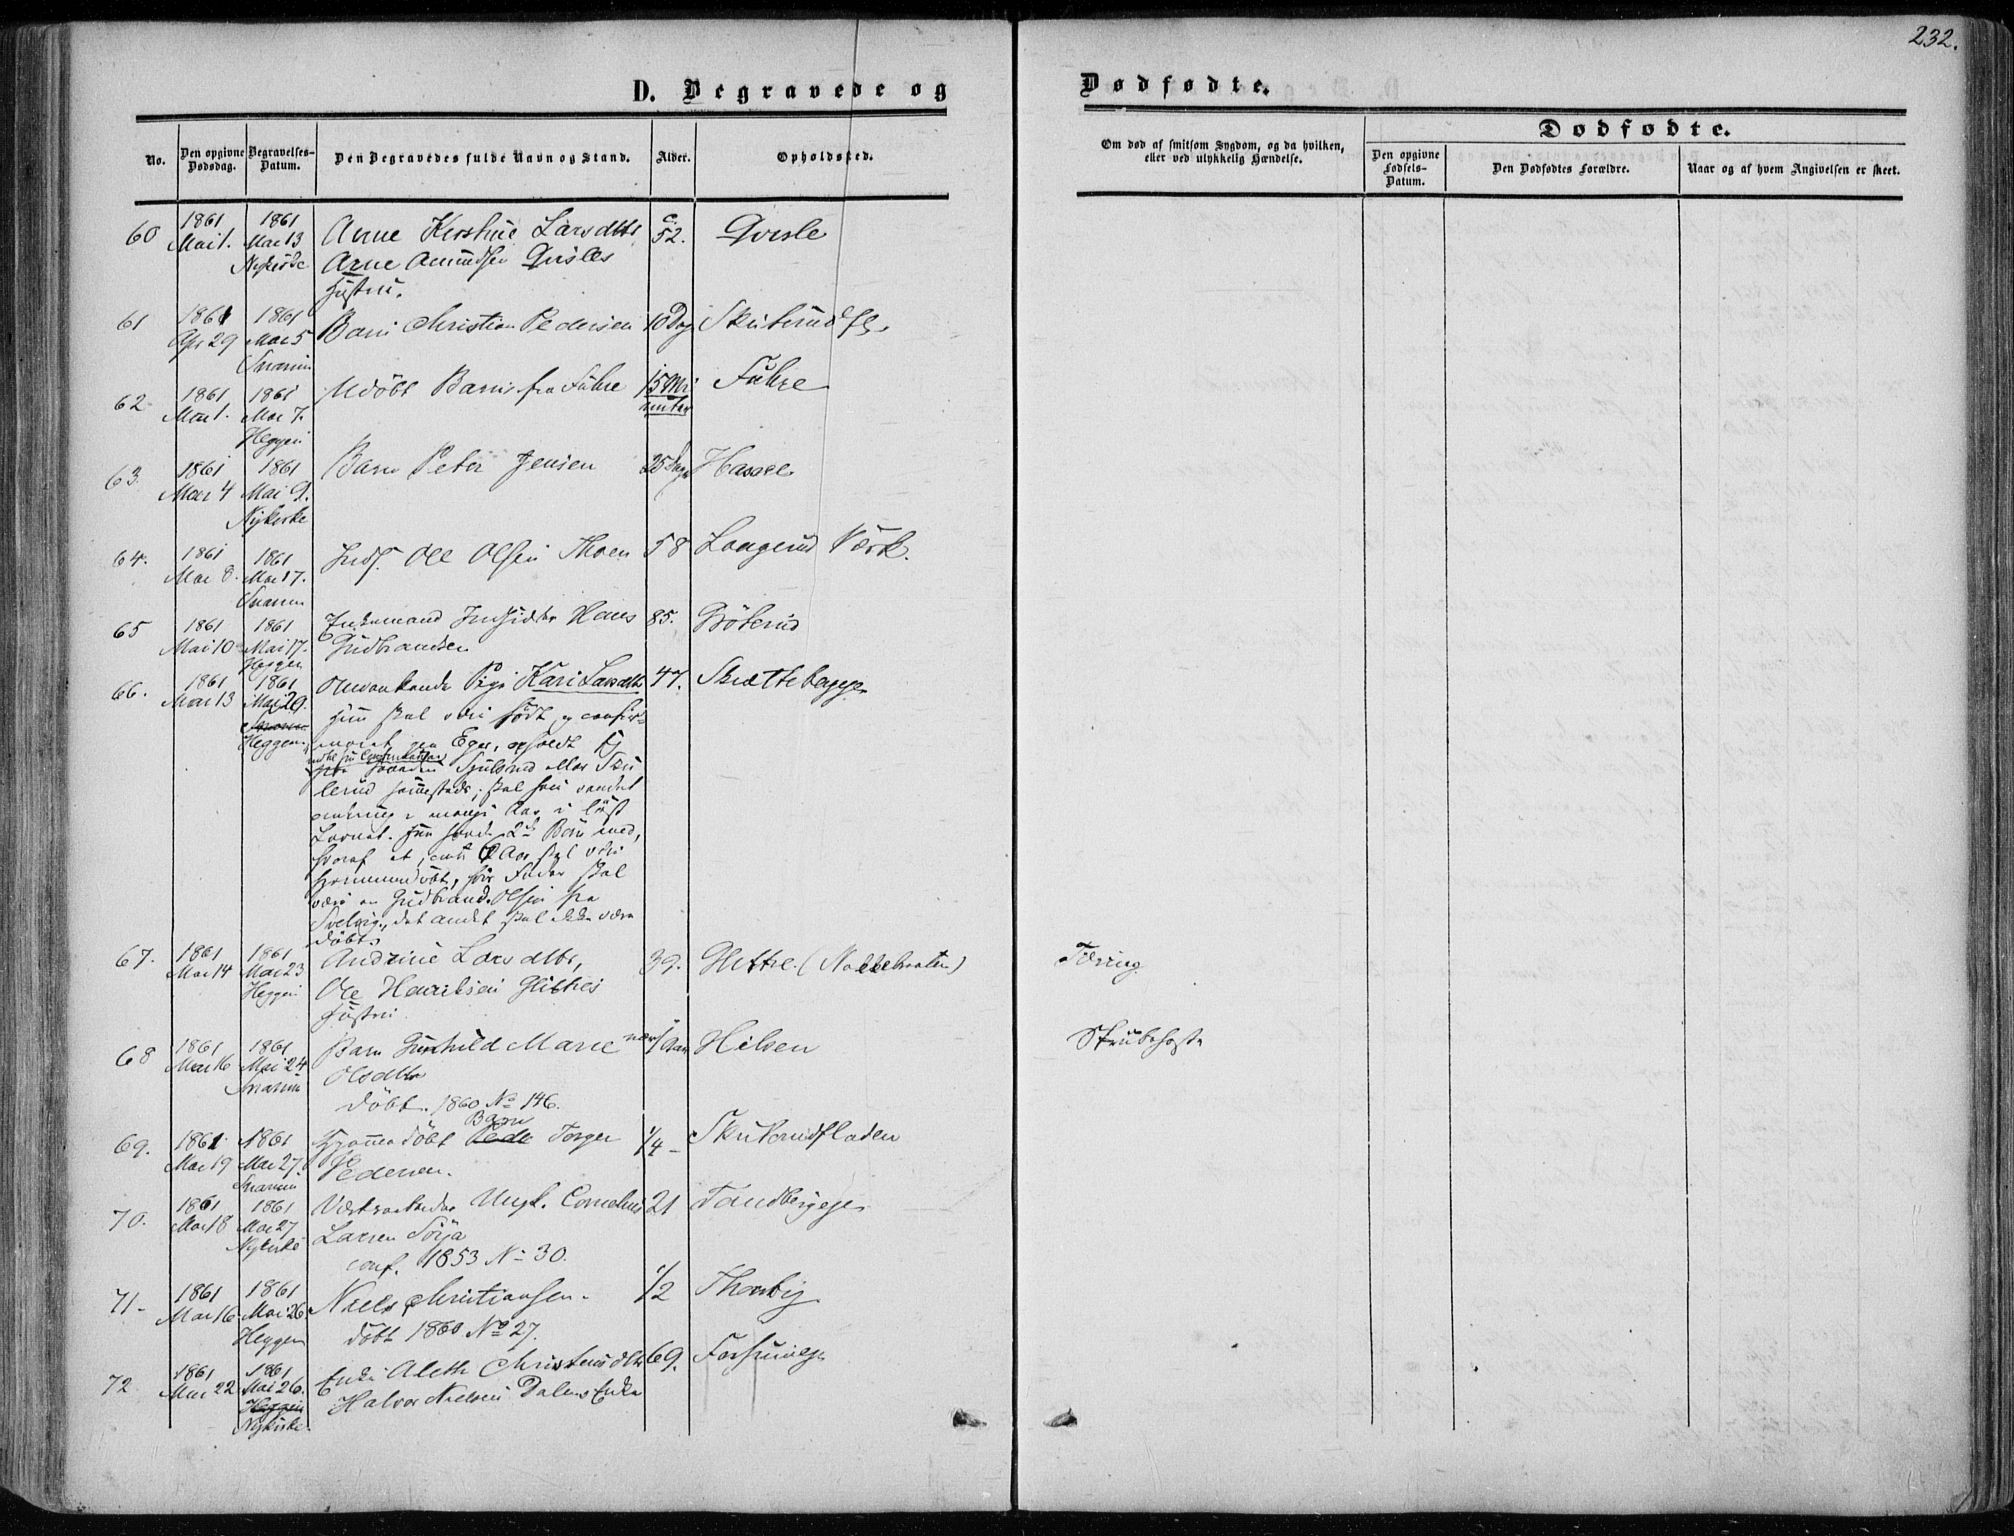 232.
D. Begravede og
Dødfødte.
No.
Den opgivne Dødsdag.
Begravelses-Datum.
Den Begravedes fulde Navn og Stand.
Alder.
Opholdsted.
Om død af smitsom Sygdom, og da hvilken,
eller ved ulykkelig Hændelse.
Dødfødte.
Den opgivne
Fødsels-
Datum.
Den Dødfødtes Forældre.
Naar og af hvem Angivelsen er skeet.
60 1861 1861 Anne Kirstine Larsdtr 52. Gvisle
Mai 1. Mai 13 Arne Amundsen Gvisles
Nykirke Hustru.
61 1861 1861 Barn Christian Pedersen 10 Dag
Apr 29 Mai 5
Snarum
62 1861 1861 Udöbt Barn fra Fuhre 15 Mi Fuhre
Mai 1. Mai 7. nuter
Heggen
63 1861 1861 Barn Peter Jensen 25 Dage
Mai 4 Mai 9.
Nykirke
64. 1861 1861 Inds. Ole Olsen Moen 58 Værk.
Mai 8. Mai 17.
Snarum
65 1861 1861 Enkemand Indsidder Hans 85.
Mai 10 Mai 17. Gudbrandsen
Heggen
66. 1861 1861 Omvankende Pige Kari Larsdtr 47.
Mai 13 Mai 29. Hun skal være født og confir-
Snarum
Heggen. meret paa Eger, opholdt
Sjulsrud eller
omkring i mange Aar i löst
Levnet. Hun havde 2de Børn med,
hvoraf et, Aar skal være
hjemmedöbt, hvis Fader skal
være en Gudbrand Olsen fra
Svelvig, det andet skal ikke være
döbt.
67. 1861 1861 Andrine Larsdtr, 39. Tæring
Mai 14 Mai 23 Ole Henriksen
Heggen Hustru
68 1861 1861 Barn Gunhild Marie 1 Aar Hilsen Strubehoste
Mai 16 Mai 24 Olsdtr
Snarum döbt. 1860 No 146.
Barn
69. 1861 1861 Hjemmedöbt Torger 1/4 Skuterudfladen
Mai 19 Mai 27. Pedersen.
Snarum
70. 1861 1861 Værksarbeider Ungk. Cornelius 21 Tandbergeje
Mai 18 Mai 27 Larsen
Nykirke conf. 1853 No 30.
71. 1861 1861 Niels Christiansen. 1/2 Thorby
Mai 16 Mai 26. döbt 1860 No 27.
Heggen
72 1861 1861 Enke Aleth Christensdtr 69.
Mai 22 Mai 26. Halvor Nielsen Dalens Enke
Heggen
Nykirke.